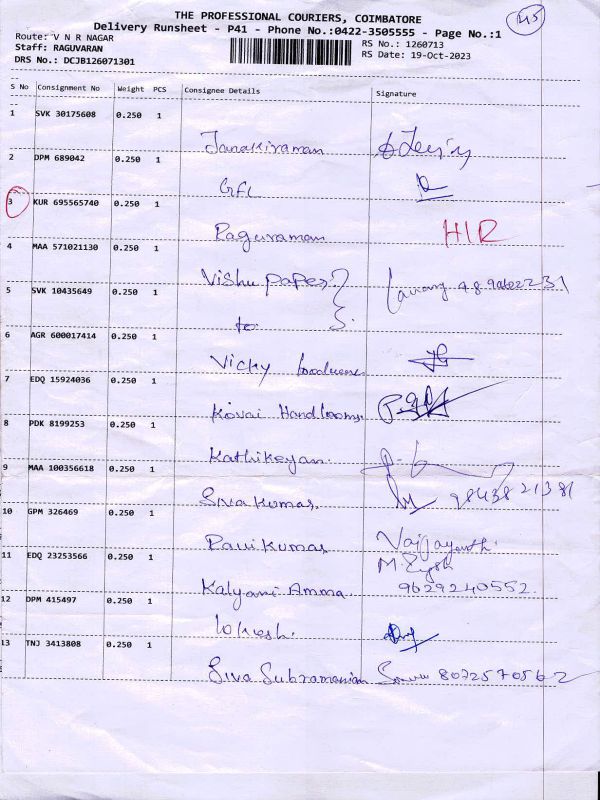 THE PROFESSIONAL COURIERS, COIMBATORE
Delivery Runsheet - P41 - Phone No.:0422-3505555 - Page No.:1
Route: V N R NAGAR
Staff: RAGUVARAN
DRS No.: DCJB126071301
RS No.: 1260713
RS Date: 19-Oct-2023
S No Consignment No Weight PCS Consignee Details Signature
1 SVK 30175608 0.250 1
Janakiraman
2 DPM 689042 0.250 1
GFL
3 KUR 695565740 0.250 1
Raguraman HIR
4 MAA 571021130 0.250 1
Vishu Paper
5 SVK 10435649 0.250 1
to
6 AGR 600017414 0.250 1
Vicky
7 EDQ 15924036 0.250 1
Kovai Handlooms
8 PDK 8199253 0.250 1
Kathikeyan.
9 MAA 100356618 0.250 1
Siva Kumar. 9843821381
10 GPM 326469 0.250 1
Ravi Kumar
11 EDQ 23253566 0.250 1
Kalyani Amma. 9629240552.
12 DPM 415497 0.250 1
Lokesh.
13 TNJ 3413808 0.250 1
Siva Subramanian 8072570562